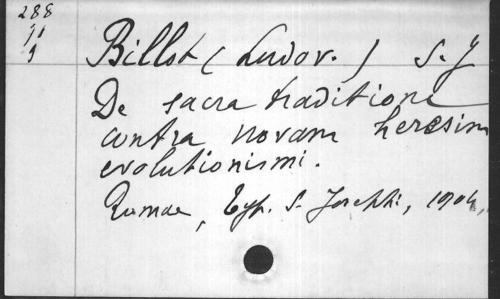 288
71
9
Billot (Ludov.) S. J
De sacra traditione
contra novam heresim
evolutionismi.
Romae, Typ. S. Josephi, 1904.